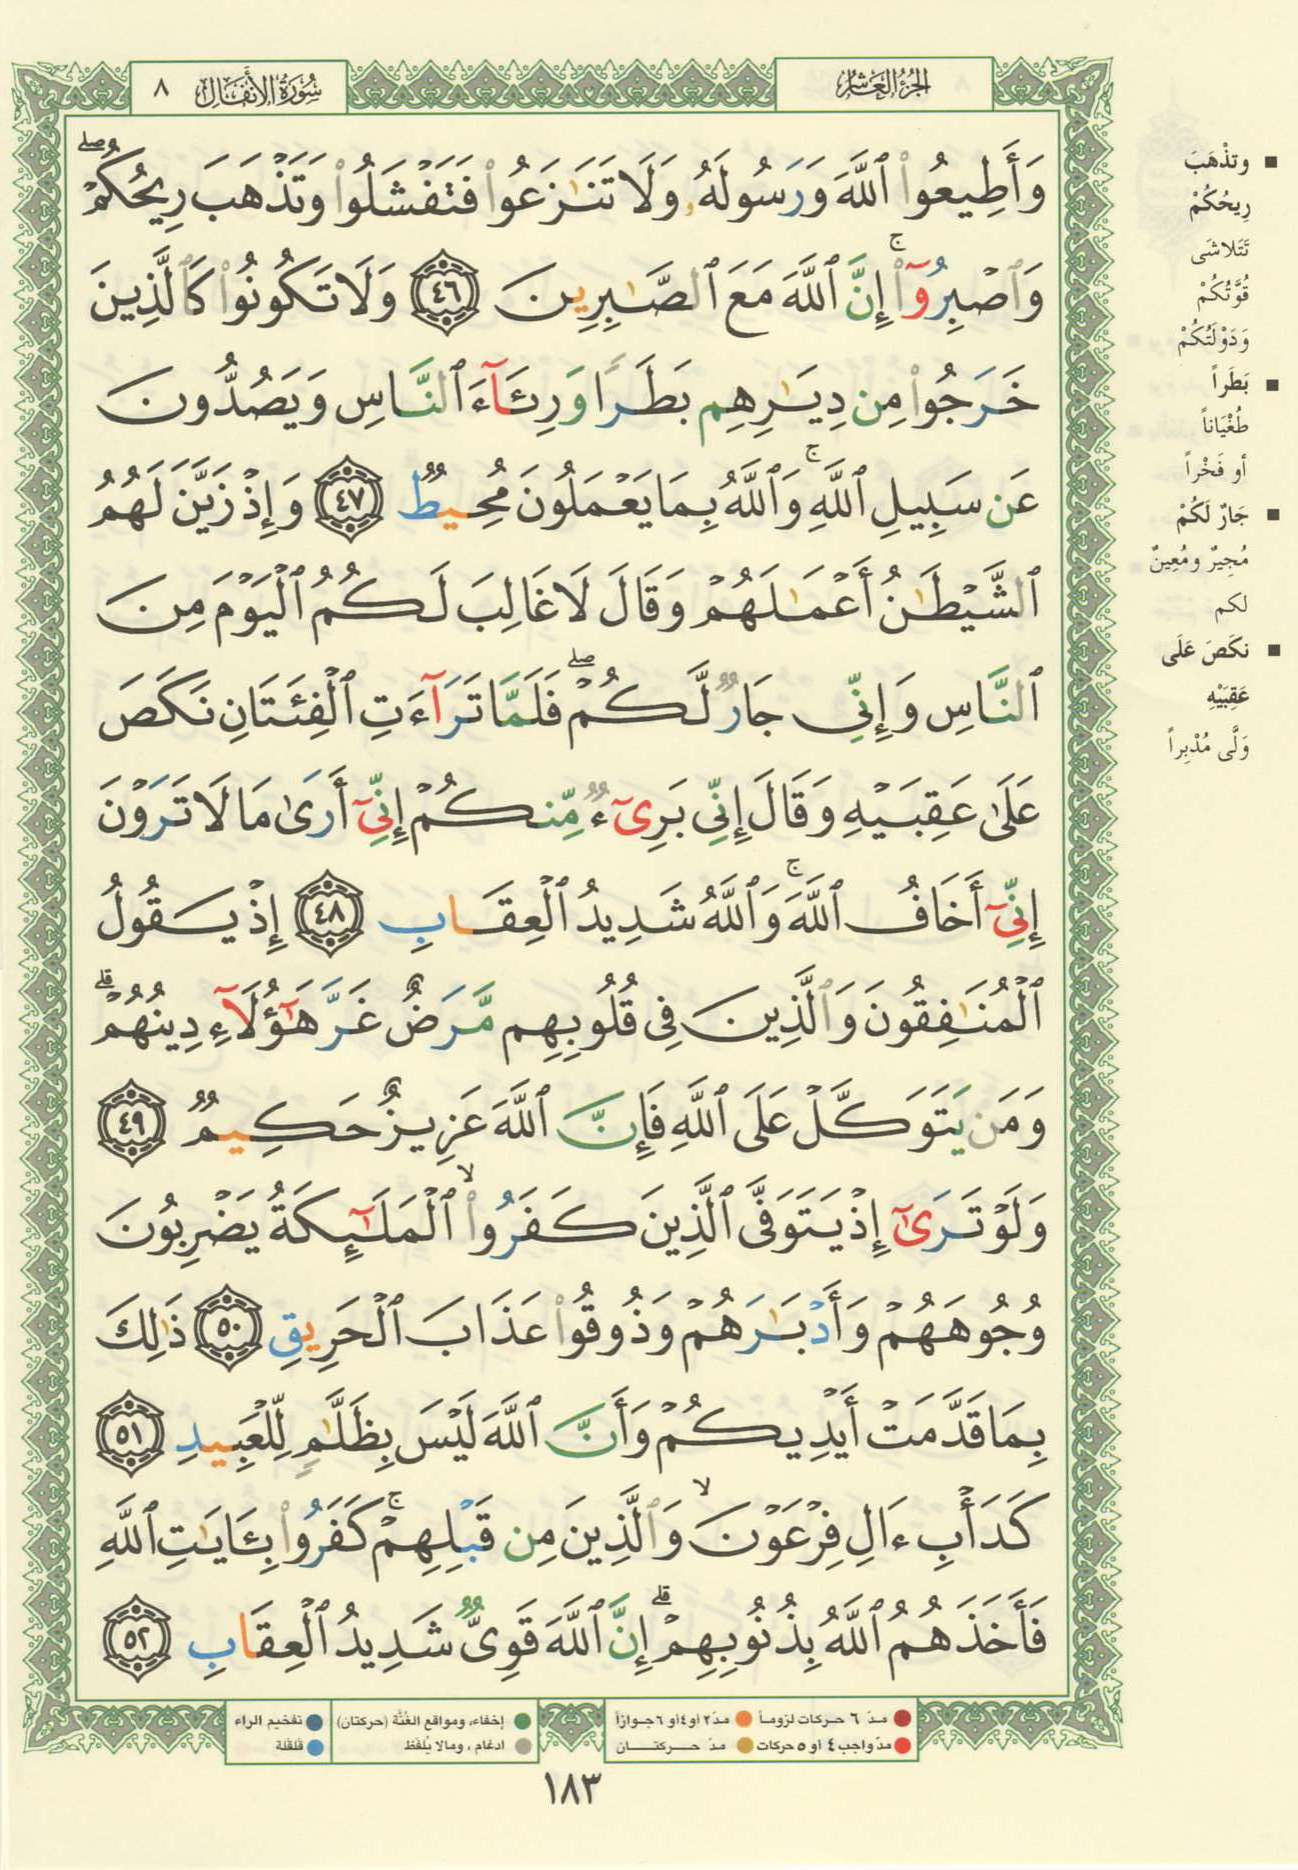 سُورَةُ الأَنفَال ٨
الجُزْءُ العَاشِر
وَأَطِيعُوا۟ ٱللَّهَ وَرَسُولَهُۥ وَلَا تَنَـٰزَعُوا۟ فَتَفْشَلُوا۟ وَتَذْهَبَ رِيحُكُمْ ۖ
وَٱصْبِرُوٓا۟ ۚ إِنَّ ٱللَّهَ مَعَ ٱلصَّـٰبِرِينَ ٤٦ وَلَا تَكُونُوا۟ كَٱلَّذِينَ
خَرَجُوا۟ مِن دِيَـٰرِهِم بَطَرًا وَرِئَآءَ ٱلنَّاسِ وَيَصُدُّونَ
عَن سَبِيلِ ٱللَّهِ ۚ وَٱللَّهُ بِمَا يَعْمَلُونَ مُحِيطٌ ٤٧ وَإِذْ زَيَّنَ لَهُمُ
ٱلشَّيْطَـٰنُ أَعْمَـٰلَهُمْ وَقَالَ لَا غَالِبَ لَكُمُ ٱلْيَوْمَ مِنَ
ٱلنَّاسِ وَإِنِّى جَارٌ لَّكُمْ ۖ فَلَمَّا تَرَآءَتِ ٱلْفِئَتَانِ نَكَصَ
عَلَىٰ عَقِبَيْهِ وَقَالَ إِنِّى بَرِىٓءٌ مِّنكُمْ إِنِّىٓ أَرَىٰ مَا لَا تَرَوْنَ
إِنِّىٓ أَخَافُ ٱللَّهَ ۚ وَٱللَّهُ شَدِيدُ ٱلْعِقَابِ ٤٨ إِذْ يَقُولُ
ٱلْمُنَـٰفِقُونَ وَٱلَّذِينَ فِى قُلُوبِهِم مَّرَضٌ غَرَّ هَـٰٓؤُلَآءِ دِينُهُمْ ۗ
وَمَن يَتَوَكَّلْ عَلَى ٱللَّهِ فَإِنَّ ٱللَّهَ عَزِيزٌ حَكِيمٌ ٤٩
وَلَوْ تَرَىٰٓ إِذْ يَتَوَفَّى ٱلَّذِينَ كَفَرُوا۟ ۙ ٱلْمَلَـٰٓئِكَةُ يَضْرِبُونَ
وُجُوهَهُمْ وَأَدْبَـٰرَهُمْ وَذُوقُوا۟ عَذَابَ ٱلْحَرِيقِ ٥٠ ذَٰلِكَ
بِمَا قَدَّمَتْ أَيْدِيكُمْ وَأَنَّ ٱللَّهَ لَيْسَ بِظَلَّـٰمٍ لِّلْعَبِيدِ ٥١
كَدَأْبِ ءَالِ فِرْعَوْنَ ۙ وَٱلَّذِينَ مِن قَبْلِهِمْ ۚ كَفَرُوا۟ بِـَٔايَـٰتِ ٱللَّهِ
فَأَخَذَهُمُ ٱللَّهُ بِذُنُوبِهِمْ ۗ إِنَّ ٱللَّهَ قَوِىٌّ شَدِيدُ ٱلْعِقَابِ ٥٢
■ وتذْهَبَ
رِيحُكُمْ
تَتَلاشَى
قُوَّتُكُمْ
وَدَوْلَتُكُمْ
■ بَطَراً
طُغْيَاناً
أو فَخْراً
■ جَارٌ لَكُمْ
مُجِيرٌ ومُعِينٌ
لكم
■ نكَصَ عَلَى
عَقِبَيْهِ
وَلَّى مُدْبِراً
مدّ ٦ حركات لزوماً مدّ ٢ أو ٤ أو ٦ جوازاً
مدّ واجب ٤ أو ٥ حركات مدّ حركتان
إخفاء، ومواقع الغُنَّة (حركتان) تفخيم الراء
ادغام، ومالا يُلفَظ قلقلة
١٨٣